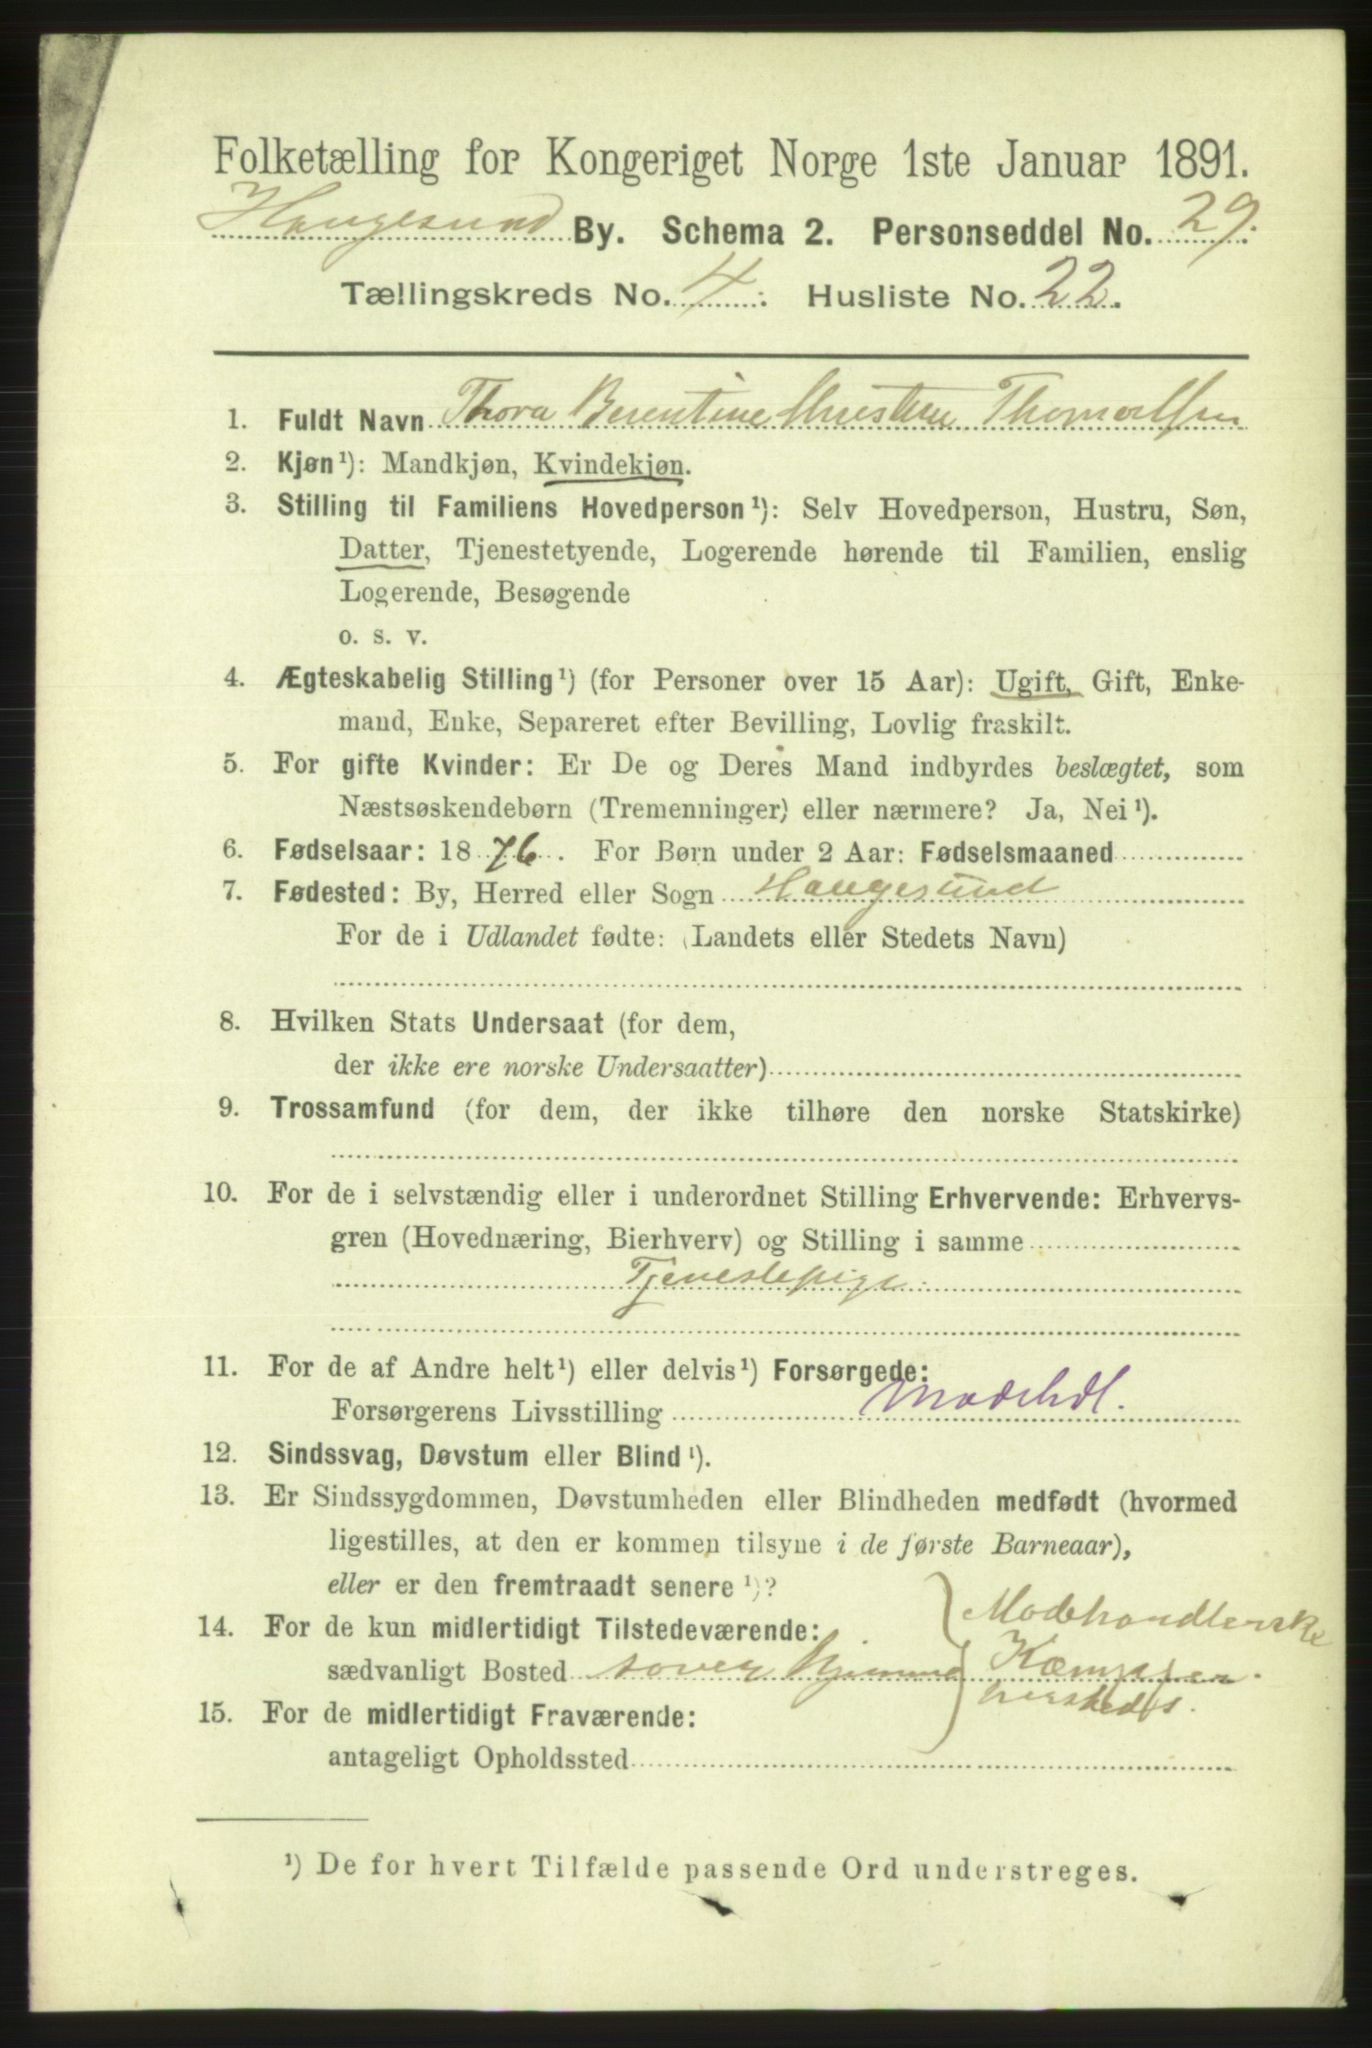 Folketælling for Kongeriget Norge 1ste Januar 1891.
Haugesund By. Schema 2. Personseddel No. 29.
Tællingskreds No. 4. Husliste No. 22.
1. Fuldt Navn Thora Berentine Christine Thomassen
2. Kjøn ¹): Mandkjøn, Kvindekjøn.
3. Stilling til Familiens Hovedperson ¹): Selv Hovedperson, Hustru, Søn,
Datter, Tjenestetyende, Logerende hørende til Familien, enslig
Logerende, Besøgende
o. s. v.
4. Ægteskabelig Stilling ¹) (for Personer over 15 Aar): Ugift, Gift, Enke-
mand, Enke, Separeret efter Bevilling, Lovlig fraskilt.
5. For gifte Kvinder: Er De og Deres Mand indbyrdes beslægtet, som
Næstsøskendebørn (Tremenninger) eller nærmere? Ja, Nei ¹).
6. Fødselsaar: 1876. For Børn under 2 Aar: Fødselsmaaned
7. Fødested: By, Herred eller Sogn Haugesund
For de i Udlandet fødte: (Landets eller Stedets Navn)
8. Hvilken Stats Undersaat (for dem,
der ikke ere norske Undersaatter)
9. Trossamfund (for dem, der ikke tilhøre den norske Statskirke)
10. For de i selvstændig eller i underordnet Stilling Erhvervende: Erhvervs-
gren (Hovednæring, Bierhverv) og Stilling i samme
Tjenestepige
11. For de af Andre helt ¹) eller delvis ¹) Forsørgede:
Forsørgerens Livsstilling Modehdl.
12. Sindssvag, Døvstum eller Blind ¹).
13. Er Sindssygdommen, Døvstumheden eller Blindheden medfødt (hvormed
ligestilles, at den er kommen tilsyne i de første Barneaar),
eller er den fremtraadt senere ¹)?
Modehandlerske
14. For de kun midlertidigt Tilstedeværende:
sædvanligt Bosted sover hjemme
15. For de midlertidigt Fraværende:
antageligt Opholdssted
¹) De for hvert Tilfælde passende Ord understreges.